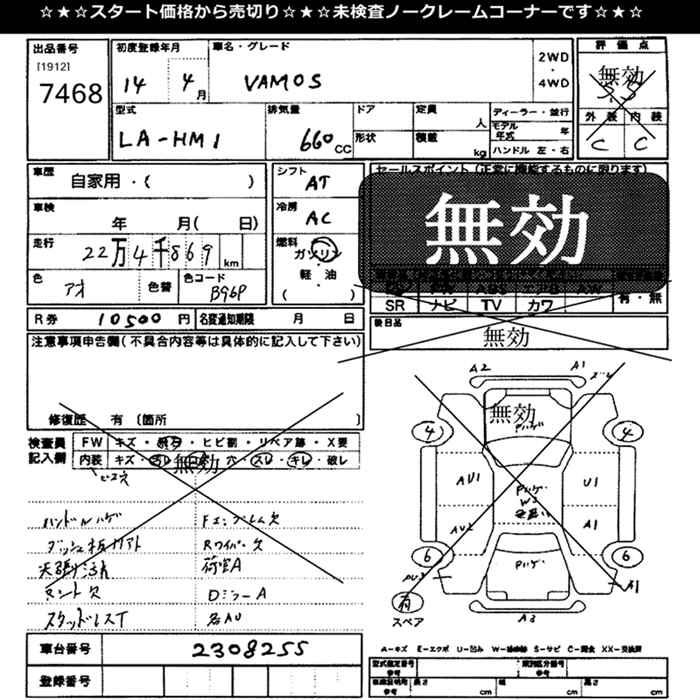 ☆★☆スタート価格から売切り☆★☆未検査ノークレームコーナーです☆★☆
出品番号
[1912]
7468
初度登録年月
14 4月
車名・グレード
VAMOS
2WD
・
4WD
評価点
無効
3.5
外装 内装
C C
型式
LA-HM1
排気量
660cc
ドア
形状
定員 人
積載 kg
ディーラー・並行
モデル年式 年
ハンドル 左・右
車歴
自家用・( )
シフト
AT
セールスポイント(正常に機能するものに限ります)
無効
車検
年 月( 日)
冷房
AC
走行
22万4千869km
燃料
ガソリン
軽・油
( )
色
アオ
色替
色コード
B96P
SR ナビ TV カワ
有・無
R券 10500円
名変通知期限 月 日
後日品
無効
注意事項申告欄(不具合内容等は具体的に記入して下さい)
修復歴 有 (箇所 )
検査員記入欄
FW キズ・ ・ヒビ割・リペア跡・X要
内装 キズ・ ・ ・穴・スレ・キレ・破レ
無効
ビス穴
ハンドルハゲ
Fエンブレム欠
ダッシュ板
Rワイパー欠
天張り汚れ
荷室A
マット欠
DミラーA
スタッドレスT
各AU
A2 A1
無効
Pハゲ
4 4
AU1 U1
Pハゲ
W3
AU2 A1
6 6
Pハゲ
AU3 A1
有
スペア
A3
車台番号 2308255
登録番号
A-キズ E-エクボ U-凹み W-補修跡 S-サビ C-腐食 XX-交換済
型式指定番号 参考
類別区分番号 参考
車庫証明用 参考
長さ cm
幅 cm
高さ cm